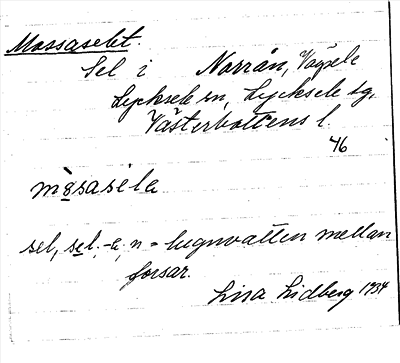 Mossaselet.
Sel i Norrån, Vägsele
Lycksele sn, Lycksele sg,
Västerbottens l.
46
sel, sel, -e, n = lugnvatten mellan
forsar.
Lisa Lidberg 1934